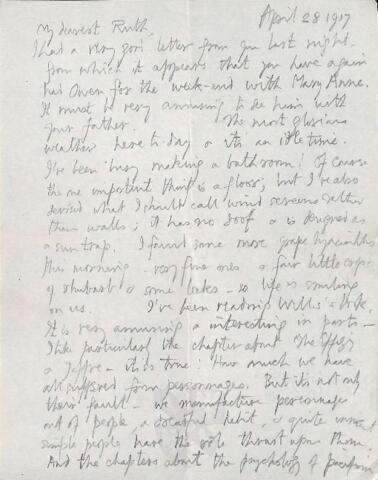 April 28 1917
My dearest Ruth,
I had a very good letter from you last night -
from which it appears that you have again
had Owen for the week-end with Mary Anne.
It must be very amusing to see him with
your father. The most glorious
weather here to-day & it's an idle time.
I've been busy making a bathroom! Of course
the one important thing is a floor; but I've also
devised what I should call wind screens rather
than walls; it has no roof & is designed as
a sun trap. I found some more grape hyacinths
this morning - very fine ones & a fair little crop
of rhubarb & some leeks - so life is smiling
on us. I've been reading Wells's book.
It is very amusing & interesting in parts -
I like particularly the chapter about the Effigy
& Joffre - it is true! How much we have
all suffered from personages. But it's not only
their fault - we manufacture personages
out of people, a dreadful habit, & quite
simple people have the role thrust upon them.
And the chapters about the psychology of